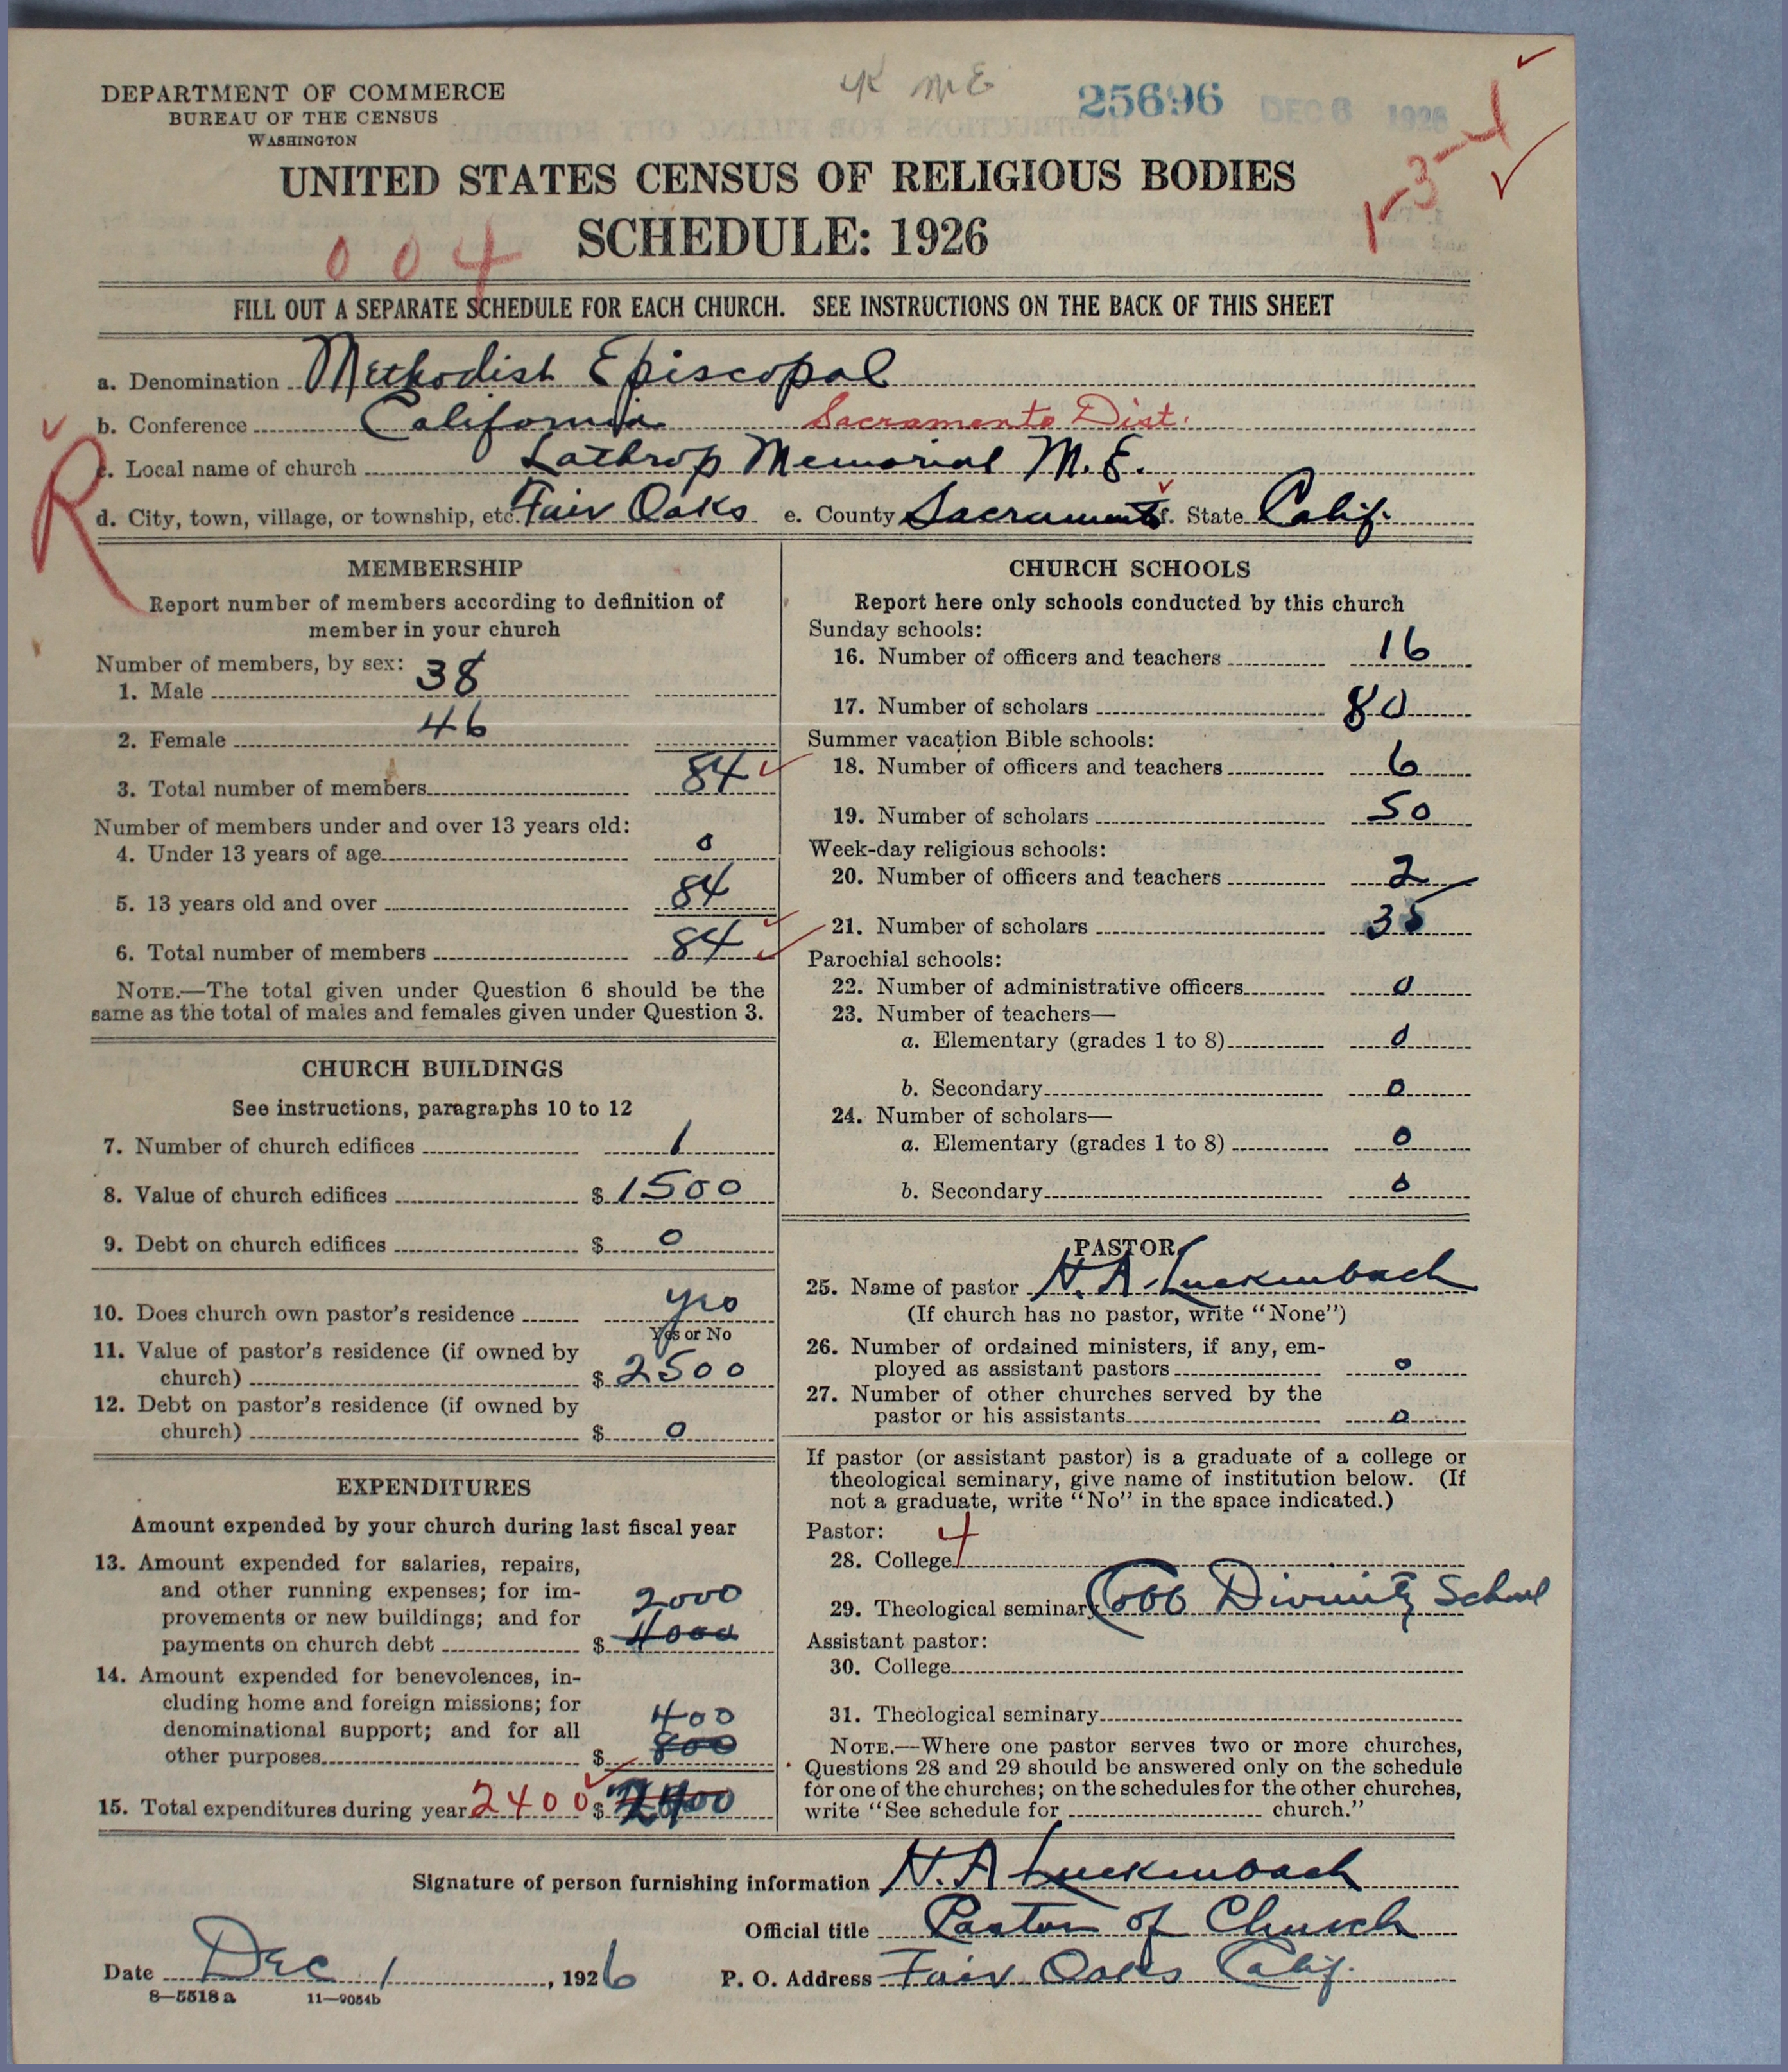 DEPARTMENT OF COMMERCE
BUREAU OF THE CENSUS
WASHINGTON
ME
25696 DEC 6 1926
1-3-4
UNITED STATES CENSUS OF RELIGIOUS BODIES
SCHEDULE: 1926
004
FILL OUT A SEPARATE SCHEDULE FOR EACH CHURCH. SEE INSTRUCTIONS ON THE BACK OF THIS SHEET
a. Denomination Methodist Episcopal
b. Conference California Sacramento Dist.
R
c. Local name of church Lathrop Memorial M.E.
d. City, town, village, or township, etc. Fair Oaks e. County Sacramento f. State Calif.
MEMBERSHIP
Report number of members according to definition of
member in your church
Number of members, by sex:
1. Male 38
2. Female 46
3. Total number of members 84
Number of members under and over 13 years old:
4. Under 13 years of age 0
5. 13 years old and over 84
6. Total number of members 84
NOTE.—The total given under Question 6 should be the
same as the total of males and females given under Question 3.
CHURCH BUILDINGS
See instructions, paragraphs 10 to 12
7. Number of church edifices 1
8. Value of church edifices $ 1500
9. Debt on church edifices $ 0
10. Does church own pastor's residence yes
Yes or No
11. Value of pastor's residence (if owned by
church) $ 2500
12. Debt on pastor's residence (if owned by
church) $ 0
EXPENDITURES
Amount expended by your church during last fiscal year
13. Amount expended for salaries, repairs,
and other running expenses; for im-
provements or new buildings; and for 2000
payments on church debt $ 4000
14. Amount expended for benevolences, in-
cluding home and foreign missions; for
denominational support; and for all 400
other purposes $ 800
15. Total expenditures during year 2400 $ 2400
CHURCH SCHOOLS
Report here only schools conducted by this church
Sunday schools:
16. Number of officers and teachers 16
17. Number of scholars 80
Summer vacation Bible schools:
18. Number of officers and teachers 6
19. Number of scholars 50
Week-day religious schools:
20. Number of officers and teachers 2
21. Number of scholars 35
Parochial schools:
22. Number of administrative officers 0
23. Number of teachers—
a. Elementary (grades 1 to 8) 0
b. Secondary 0
24. Number of scholars—
a. Elementary (grades 1 to 8) 0
b. Secondary 0
PASTOR
25. Name of pastor H. A. Luckenbach
(If church has no pastor, write "None")
26. Number of ordained ministers, if any, em-
ployed as assistant pastors 0
27. Number of other churches served by the
pastor or his assistants 0
If pastor (or assistant pastor) is a graduate of a college or
theological seminary, give name of institution below. (If
not a graduate, write "No" in the space indicated.)
Pastor: 4
28. College
29. Theological seminary Divinity School
Assistant pastor:
30. College
31. Theological seminary
NOTE.—Where one pastor serves two or more churches,
Questions 28 and 29 should be answered only on the schedule
for one of the churches; on the schedules for the other churches,
write "See schedule for church."
Signature of person furnishing information H. A Luckenbach
Official title Pastor of Church
Date Dec 1, 1926 P. O. Address Fair Oaks Calif.
8—5518 a 11—9054b